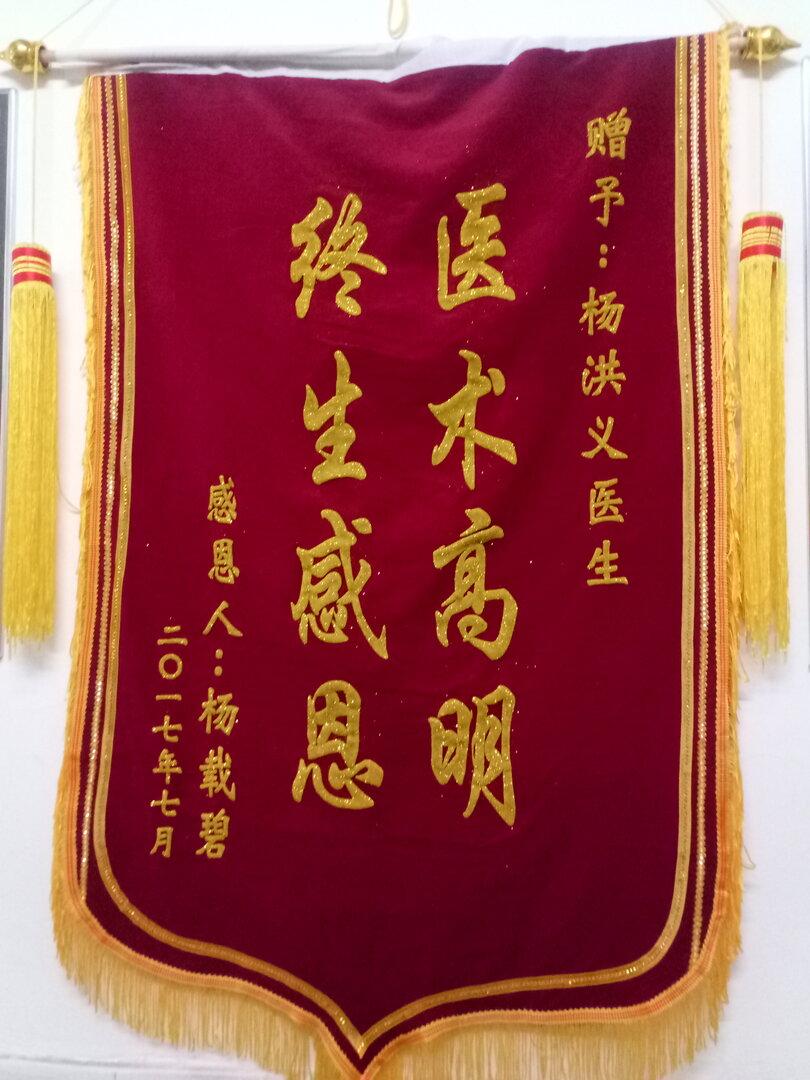 赠予：杨洪义医生
医术高明
终生感恩
感恩人：杨载碧
二〇一七年七月